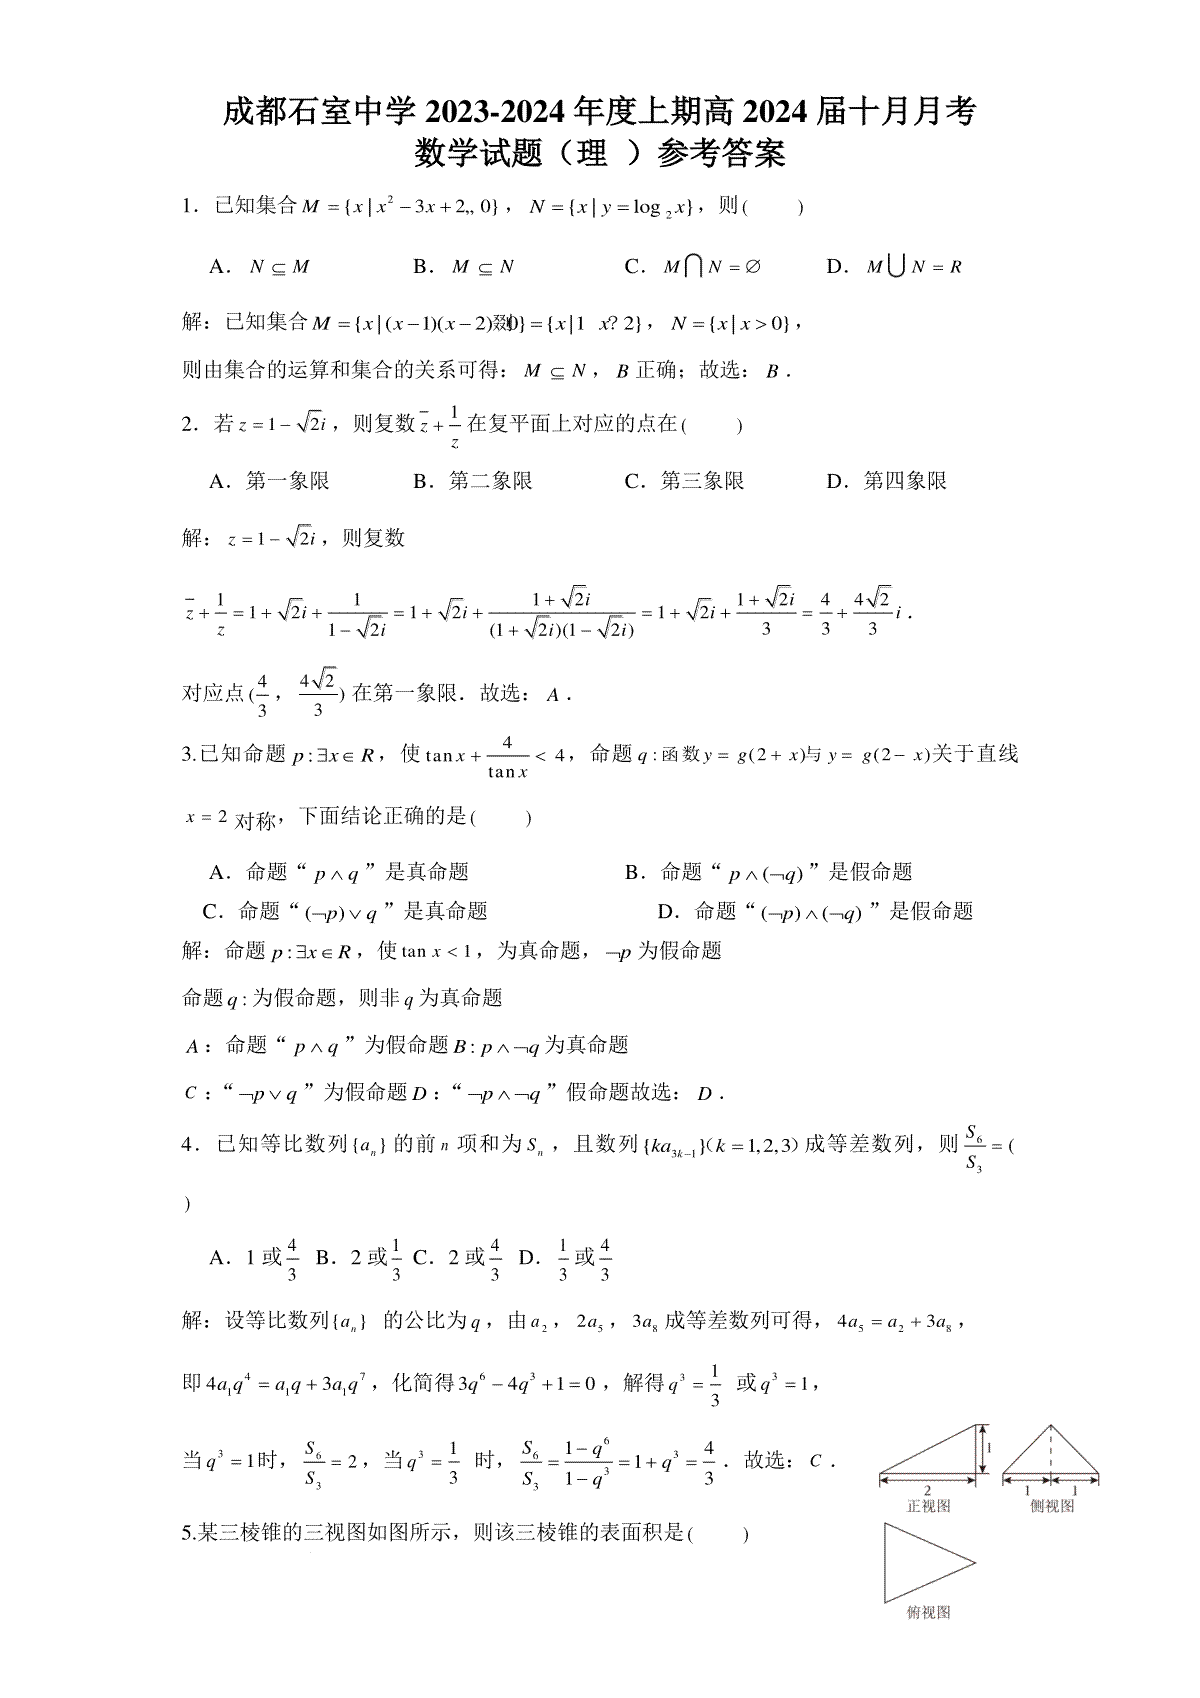 成都石室中学 2023-2024 年度上期高 2024 届十月月考
数学试题（理 ）参考答案
1．已知集合 M = {x | x² − 3x + 2,, 0}，N = {x | y = log ₂ x}，则 ( )
A．N ⊆ M B．M ⊆ N C．M⋂N = ∅ D．M⋃N = R
解：已知集合 M = {x | (x −1)(x − 2) 0} = {x |1 x? 2}，N = {x | x > 0}，
则由集合的运算和集合的关系可得：M ⊆ N，B 正确；故选：B．
2．若 z = 1 − √2i，则复数 z̄ + 1/z 在复平面上对应的点在 ( )
A．第一象限 B．第二象限 C．第三象限 D．第四象限
解：z = 1 − √2i，则复数
z̄ + 1/z = 1 + √2i + 1/(1 − √2i) = 1 + √2i + (1 + √2i)/((1 + √2i)(1 − √2i)) = 1 + √2i + (1 + √2i)/3 = 4/3 + 4√2/3 i．
对应点 (4/3，4√2/3) 在第一象限．故选：A．
3.已知命题 p : ∃x ∈ R，使 tan x + 4/tan x < 4，命题 q : 函数 y = g(2 + x)与 y = g(2 − x)关于直线
x = 2 对称，下面结论正确的是 ( )
A．命题“ p ∧ q ”是真命题 B．命题“ p ∧ (¬q) ”是假命题
C．命题“ (¬p) ∨ q ”是真命题 D．命题“ (¬p) ∧ (¬q) ”是假命题
解：命题 p : ∃x ∈ R，使 tan x < 1，为真命题，¬p 为假命题
命题 q : 为假命题，则非 q 为真命题
A：命题“ p ∧ q ”为假命题 B : p ∧ ¬q 为真命题
C：“ ¬p ∨ q ”为假命题 D：“ ¬p ∧ ¬q ”假命题故选：D．
4．已知等比数列 {aₙ} 的前 n 项和为 Sₙ，且数列 {ka₃ₖ₋₁}（k = 1,2,3）成等差数列，则 S₆/S₃ = (
)
A．1 或 4/3 B．2 或 1/3 C．2 或 4/3 D．1/3 或 4/3
解：设等比数列 {aₙ} 的公比为 q，由 a₂，2a₅，3a₈ 成等差数列可得，4a₅ = a₂ + 3a₈，
即 4a₁q⁴ = a₁q + 3a₁q⁷，化简得 3q⁶ − 4q³ + 1 = 0，解得 q³ = 1/3 或 q³ = 1，
当 q³ = 1时，S₆/S₃ = 2，当 q³ = 1/3 时，S₆/S₃ = (1 − q⁶)/(1 − q³) = 1 + q³ = 4/3．故选：C．
5.某三棱锥的三视图如图所示，则该三棱锥的表面积是 ( )
1
2 1 1
正视图 侧视图
俯视图